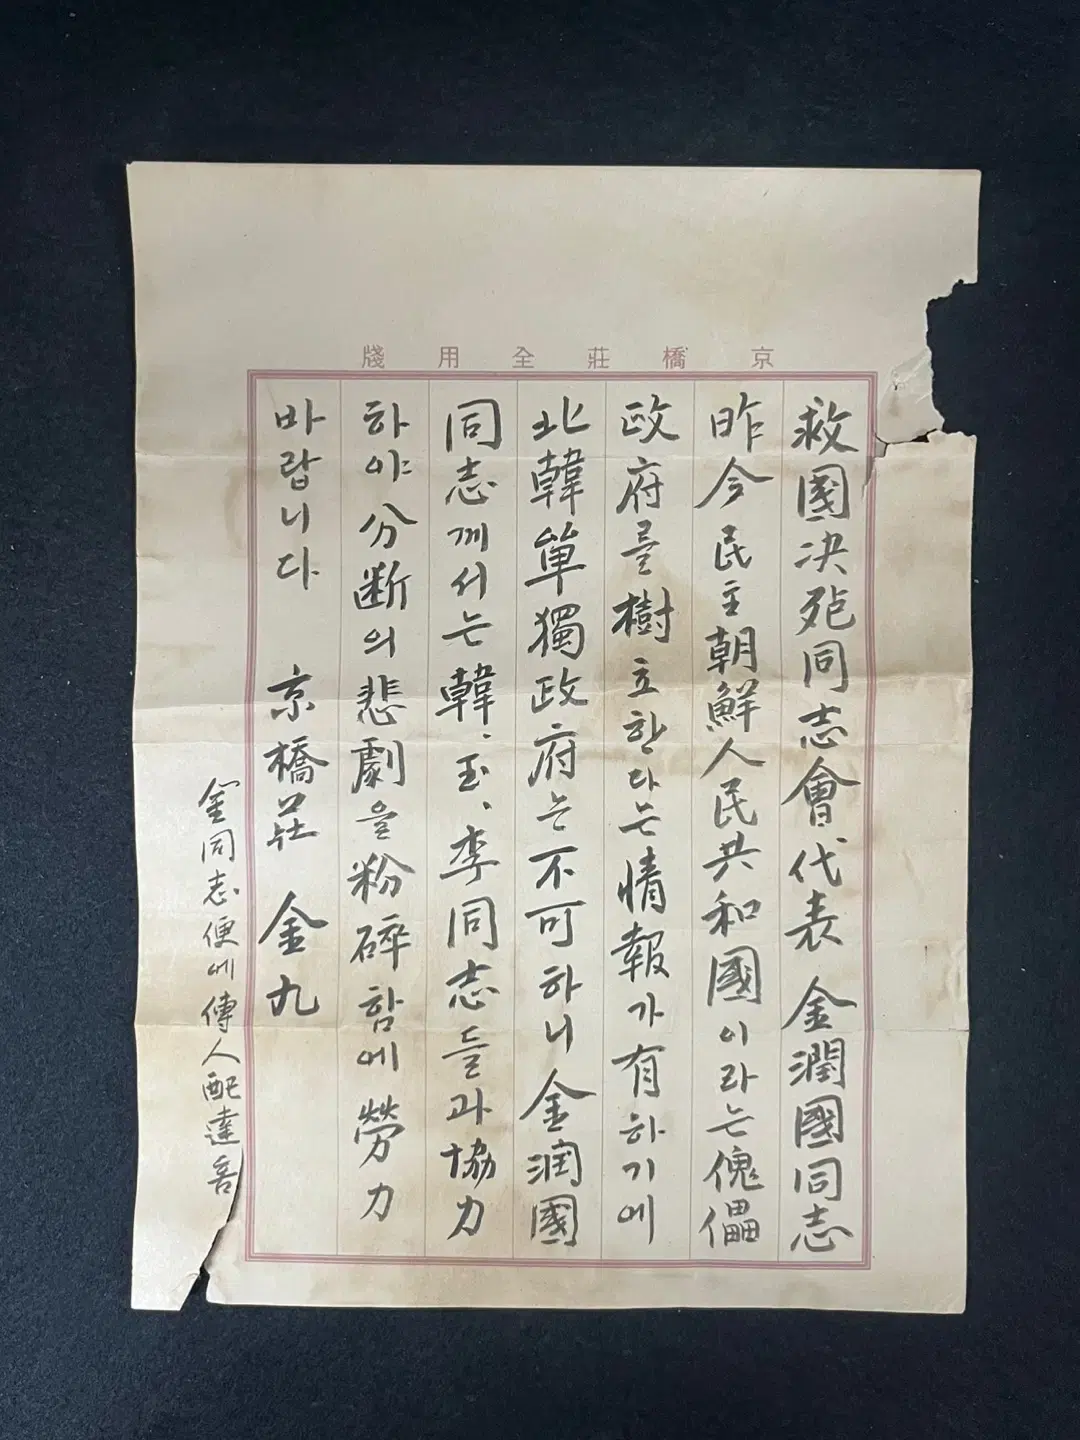 京橋莊全用牋
救國決死同志會代表金潤國同志
昨今民主朝鮮人民共和國이라는傀儡
政府를樹立한다는情報가有하기에
北韓單獨政府는不可하니金润國
同志께서는韓、玉、李同志들과協力
하야分断의悲劇을粉碎함에勞力
바랍니다 京橋莊 金九
金同志便에傳人配達